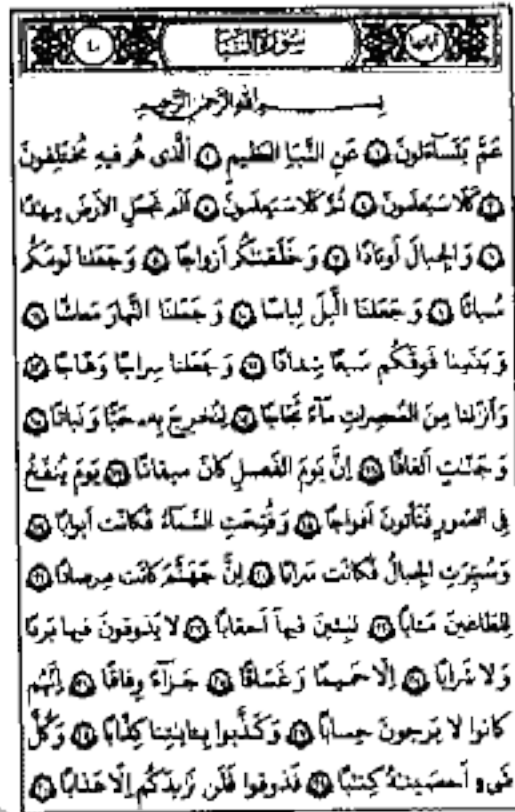 آياتها سورة النبأ ٤٠
بسم الله الرحمن الرحيم
عَمَّ يَتَسَآءَلُونَ ١ عَنِ النَّبَإِ الْعَظِيمِ ٢ الَّذِى هُمْ فِيهِ مُخْتَلِفُونَ
٣ كَلَّا سَيَعْلَمُونَ ٤ ثُمَّ كَلَّا سَيَعْلَمُونَ ٥ أَلَمْ نَجْعَلِ الْأَرْضَ مِهَٰدًا
٦ وَالْجِبَالَ أَوْتَادًا ٧ وَخَلَقْنَٰكُمْ أَزْوَٰجًا ٨ وَجَعَلْنَا نَوْمَكُمْ
سُبَاتًا ٩ وَجَعَلْنَا الَّيْلَ لِبَاسًا ١٠ وَجَعَلْنَا النَّهَارَ مَعَاشًا ١١
وَبَنَيْنَا فَوْقَكُمْ سَبْعًا شِدَادًا ١٢ وَجَعَلْنَا سِرَاجًا وَهَّاجًا ١٣
وَأَنزَلْنَا مِنَ الْمُعْصِرَٰتِ مَآءً ثَجَّاجًا ١٤ لِّنُخْرِجَ بِهِۦ حَبًّا وَنَبَاتًا ١٥
وَجَنَّٰتٍ أَلْفَافًا ١٦ إِنَّ يَوْمَ الْفَصْلِ كَانَ مِيقَٰتًا ١٧ يَوْمَ يُنفَخُ
فِى الصُّورِ فَتَأْتُونَ أَفْوَاجًا ١٨ وَفُتِحَتِ السَّمَآءُ فَكَانَتْ أَبْوَٰبًا ١٩
وَسُيِّرَتِ الْجِبَالُ فَكَانَتْ سَرَابًا ٢٠ إِنَّ جَهَنَّمَ كَانَتْ مِرْصَادًا ٢١
لِّلطَّٰغِينَ مَـَٔابًا ٢٢ لَّٰبِثِينَ فِيهَآ أَحْقَابًا ٢٣ لَّا يَذُوقُونَ فِيهَا بَرْدًا
وَلَا شَرَابًا ٢٤ إِلَّا حَمِيمًا وَغَسَّاقًا ٢٥ جَزَآءً وِفَاقًا ٢٦ إِنَّهُمْ
كَانُوا لَا يَرْجُونَ حِسَابًا ٢٧ وَكَذَّبُوا بِـَٔايَٰتِنَا كِذَّابًا ٢٨ وَكُلَّ
شَىْءٍ أَحْصَيْنَٰهُ كِتَٰبًا ٢٩ فَذُوقُوا فَلَن نَّزِيدَكُمْ إِلَّا عَذَابًا ٣٠